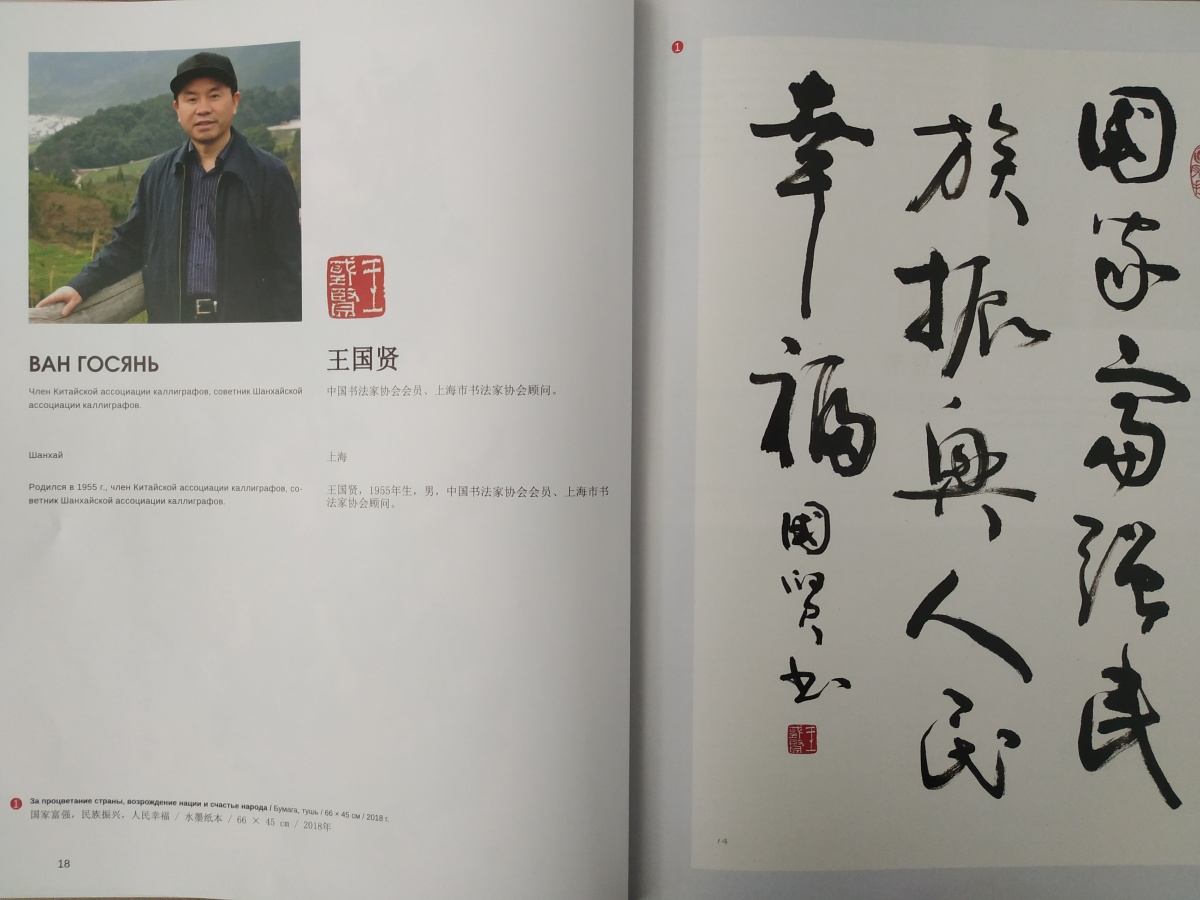 ВАН ГОСЯНЬ
Член Китайской ассоциации каллиграфов, советник Шанхайской
ассоциации каллиграфов.
Шанхай
Родился в 1955 г., член Китайской ассоциации каллиграфов, со-
ветник Шанхайской ассоциации каллиграфов.
王国贤
中国书法家协会会员、上海市书法家协会顾问。
上海
王国贤，1955年生，男，中国书法家协会会员、上海市书
法家协会顾问。
1
За процветание страны, возрождение нации и счастье народа / Бумага, тушь / 66 × 45 см / 2018 г.
国家富强，民族振兴，人民幸福 / 水墨纸本 / 66 × 45 cm / 2018年
18
1
国家富强民
族振兴人民
幸福
国贤书